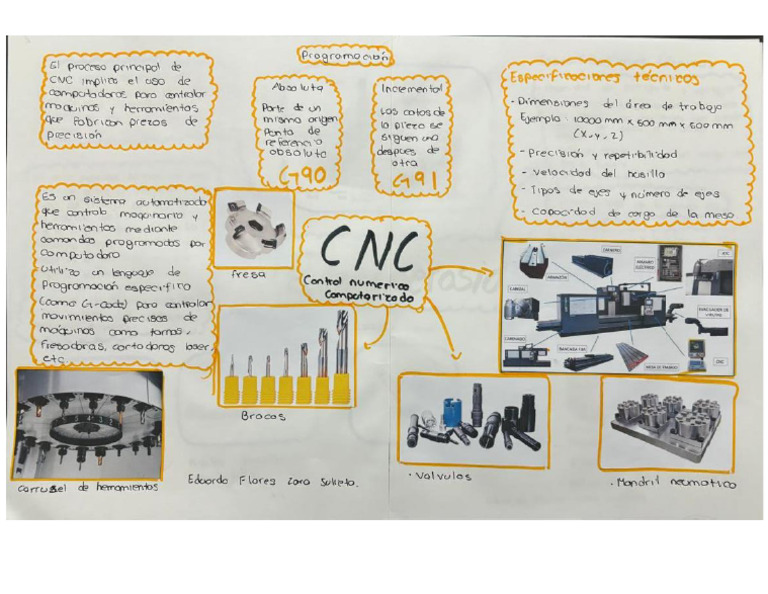 Programación
El proceso principal de
CNC implica el uso de
computadoras para controlar
maquinas y herramientas
que fabrican piezas de
precisión
Absoluta
Parte de un
mismo origen
Punto de
referencia
absoluta
G90
Incremental
Las cotas de
la pieza se
siguen una
despues de
otra
G91
Especificaciones técnicas
- Dimensiones del área de trabajo
Ejemplo: 10000 mm x 500 mm x 600 mm
(x, y, z)
- Precisión y repetibilidad
- Velocidad del husillo
- Tipos de ejes y número de ejes
- Capacidad de carga de la mesa
Es un sistema automatizado
que controla maquinaria y
herramientas mediante
comandos programados por
computadora
utiliza un lenguaje de
Programación especifico
(como G-code) para controlar
movimientos precisos de
maquinas como tornos,
fresadoras, cortadoras laser,
etc.
fresa
CNC
Control numerico
Computarizado
CARNERO
ARMAZÓN
GABINET
ELÉCTRICO
ATC
CABEZAL
EVACUADOR DE
VIRUTAS
CABEZAL
BANCADA Y EJE
MESA DE TRABAJO
CNC
Brocas
Carrusel de herramientas
Eduardo Flores Zara Sulieta.
. Valvulas
. Mandril neumatico